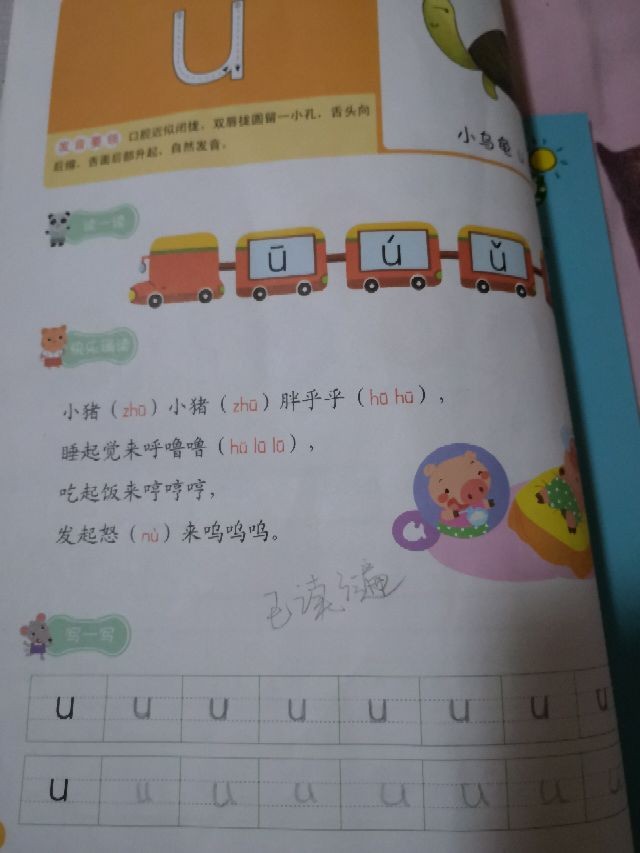 u
发音要领 口腔近似闭拢，双唇拢圆留一小孔，舌头向
后缩，舌面后部升起，自然发音。
小乌龟
读一读
ū ú ǔ
快乐诵读
小猪（zhū）小猪（zhū）胖乎乎（hū hū），
睡起觉来呼噜噜（hū lū lū），
吃起饭来哼哼哼，
发起怒（nù）来呜呜呜。
已读
写一写
u u u u u u u u
u u u u u u u u